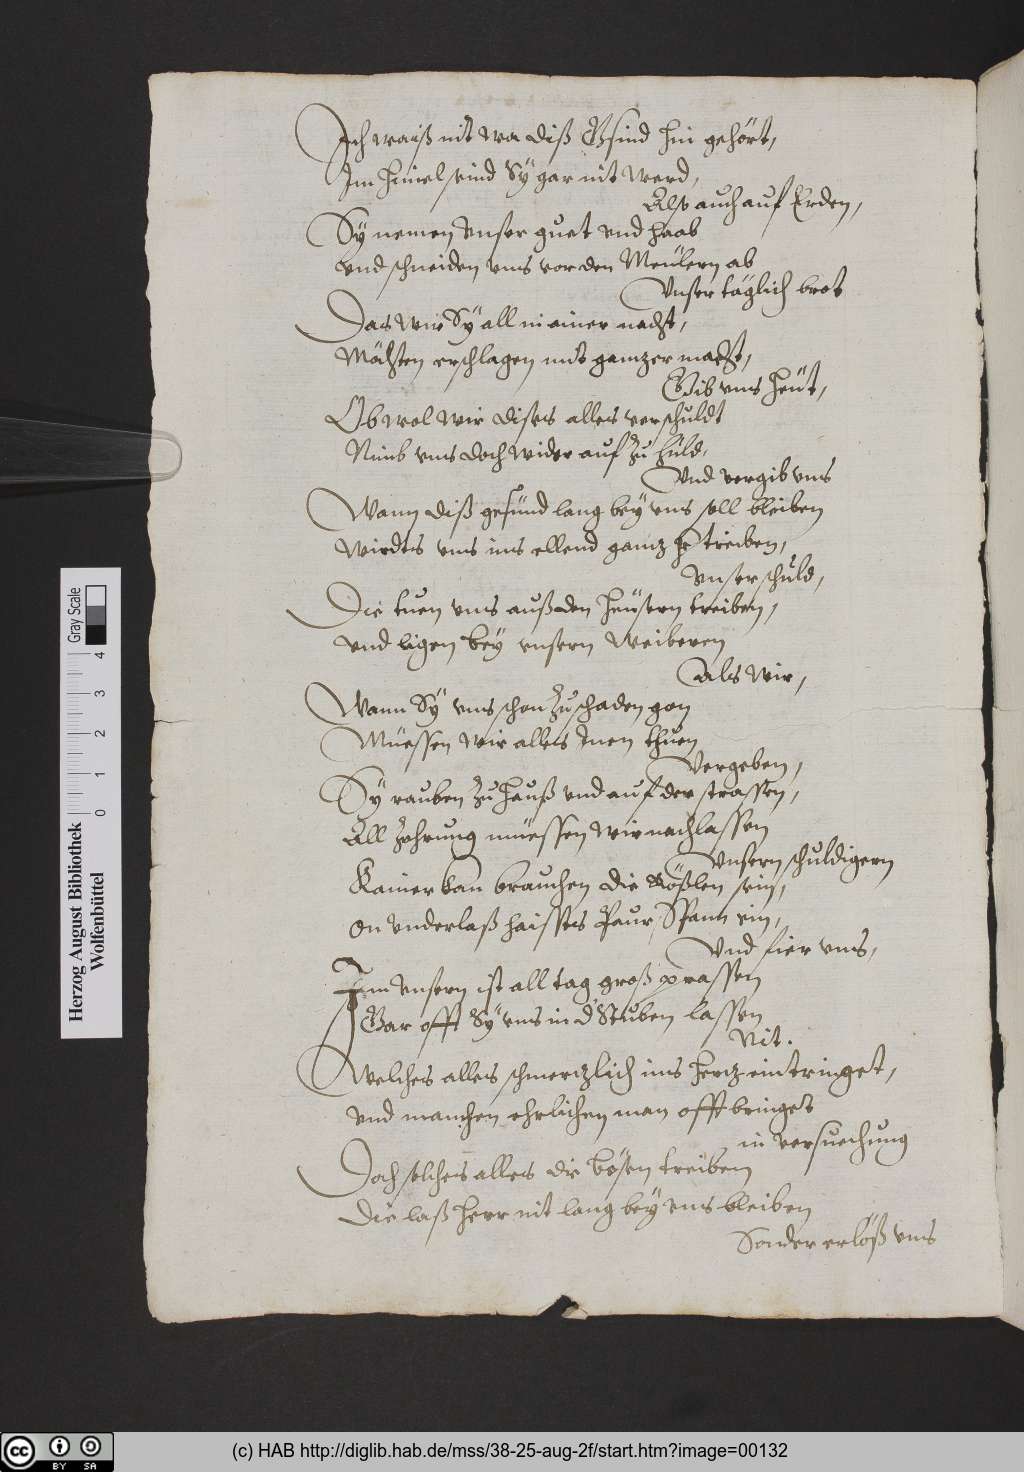 Ich waiß nit wa diß Gsind hin gehört,
Im himel seind Sÿ gar nit werd,
Also auch auf Erden,
Sÿ nemen unser guet vnd haab
vnd schneiden vns vor den Meülern ab
Vnser täglich brot
Das wir Sÿ all in ainer nacht,
Möchten erschlagen mit gantzer macht,
Gib vns heüt,
Ob wol wir dises alles verschuldt
Nimb vns doch wider auf zu huld,
Vnd vergib vns
Wann diß gesünd lang beÿ vns soll bleiben
Wirdts vns ins ellend gantz treiben,
vnser schuld,
Die tuen vns auß den heüsern treiben,
vnd ligen beÿ vnsern Weiberen
Als wir,
Wann Sÿ vns schon zu schaden gon
Müessen wir alles Inen thuen
Vergeben,
Sÿ rauben zu hauß vnd auf der strassen,
All zehrung müessen wir nachlassen
Vnsern schuldigern
Kainer kan brauchen die Rößlen sein,
on vnderlaß haissts Paur, Spann ein,
Vnd fier vns,
Im vnsern ist all tag groß prassen
Gar offt Sÿ vns in d'Stuben lassen
Nit.
Welches alles schmertzlich ins hertz eintringet,
vnd manchen ehrlichen man offt bringet
in versuechung
Doch solches alles die bösen treiben
Die laß herr nit lang beÿ vns bleiben
Sonder erlöß vns
Herzog August Bibliothek
Wolfenbüttel
0 1 2 3 4
Gray Scale
cc BY SA
(c) HAB http://diglib.hab.de/mss/38-25-aug-2f/start.htm?image=00132